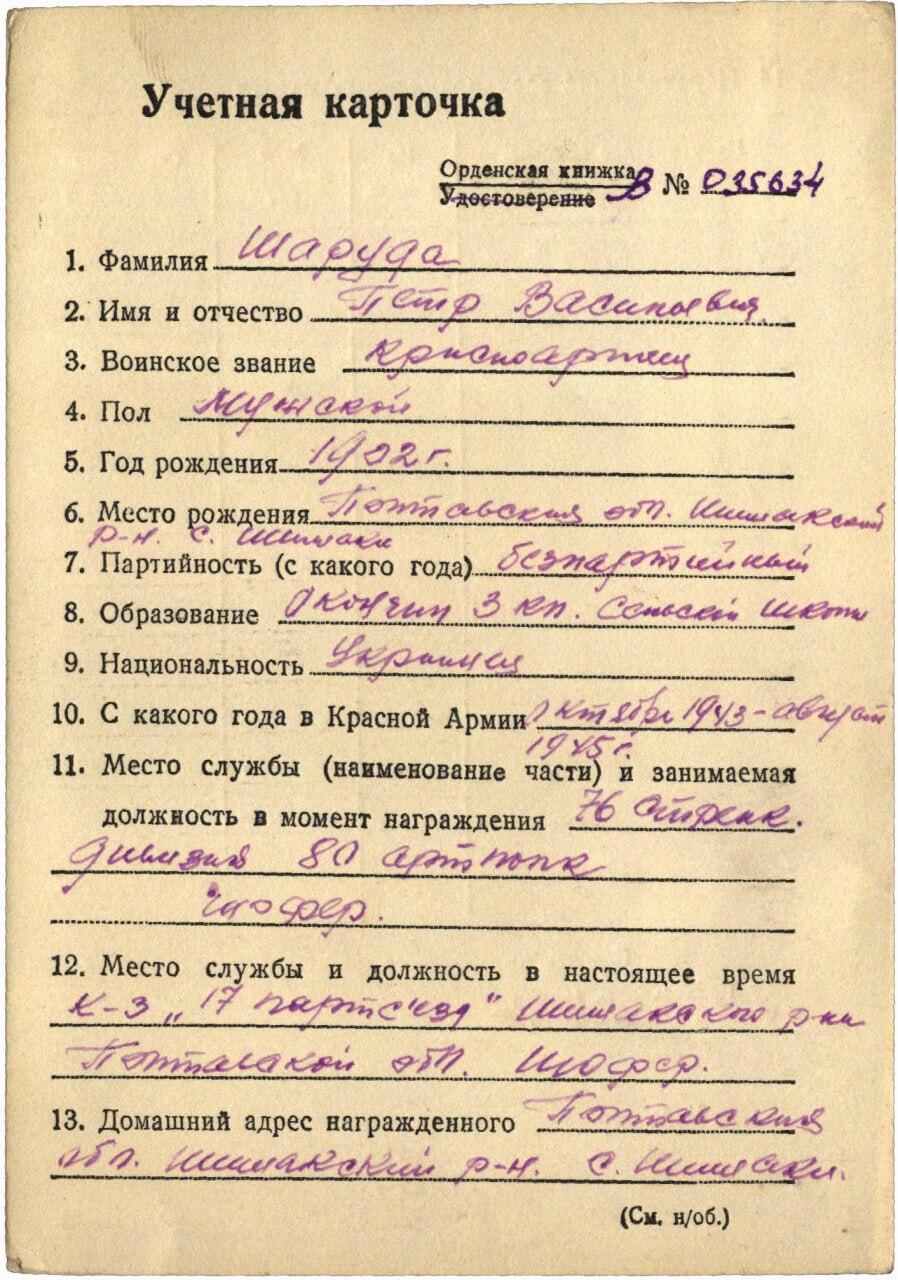 Учетная карточка
Орденская книжка
Удостоверение В № 035634
1. Фамилия Шаруда
2. Имя и отчество Петр Васильевич
3. Воинское звание красноармеец
4. Пол Мужской
5. Год рождения 1902 г.
6. Место рождения Полтавская обл. Шишакский
р-н. с. Шишаки
7. Партийность (с какого года) безпартийный
8. Образование Окончил 3 кл. Сельской школы
9. Национальность Украинец
10. С какого года в Красной Армии Октябрь 1943 - август
1945 г.
11. Место службы (наименование части) и занимаемая
должность в момент награждения 76 стрелк.
дивизия 80 артполк
шофер.
12. Место службы и должность в настоящее время
к-з „17 партсъезд" Шишакского р-на
Полтавской обл. Шофер.
13. Домашний адрес награжденного Полтавская
обл. Шишакский р-н. с. Шишаки.
(См. н/об.)